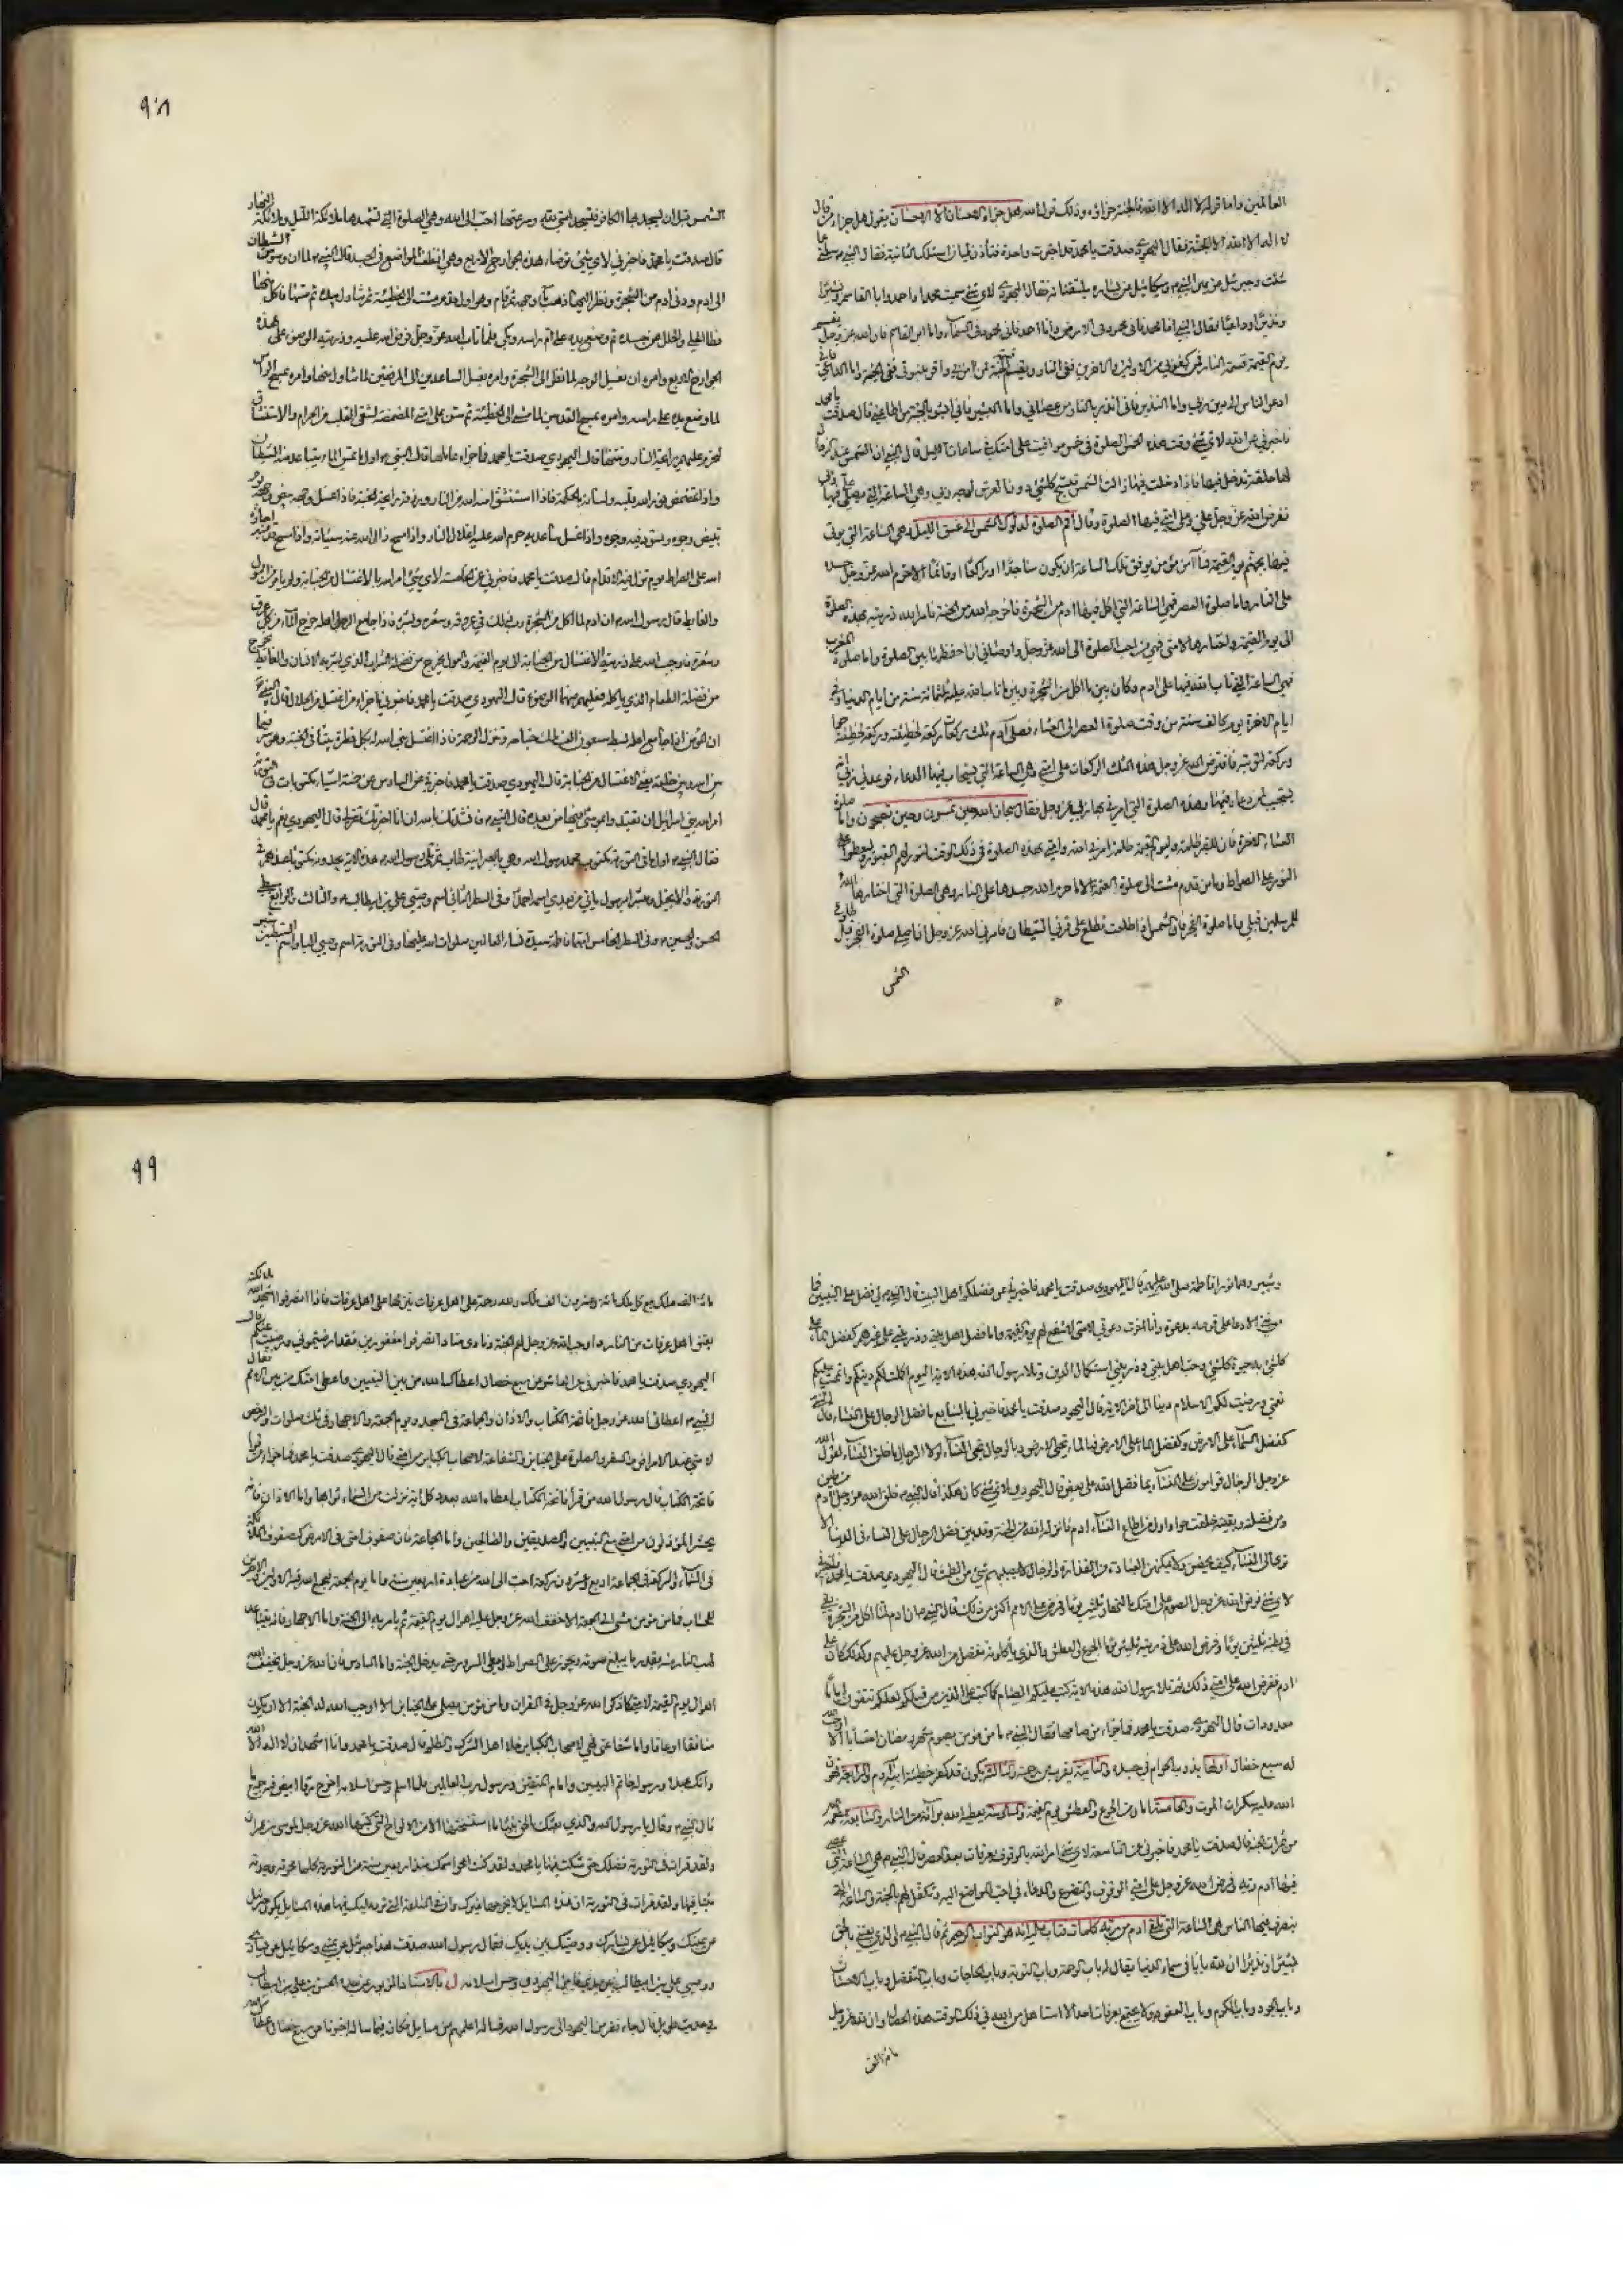 العالمين واما قوله لا اله الا الله فالجنة جزاؤه وذلك قول الله هل جزاء الاحسان الا الاحسان يقول هل جزاء من قال
لا اله الا الله الا الجنة فقال اليهودي صدقت يا محمد قد اخبرت واحدة فتأذن لي ان اسئلك الثانية فقال النبي سلني عما
شئت وجبرئيل عن يمين النبي وميكائيل عن يساره يلقنانه فقال اليهودي لاي شئ سميت محمدا واحمد وابا القاسم وبشيرا
ونذيرا وداعيا فقال النبي اما محمد فاني محمود في الارض واما احمد فاني محمود في السماء واما ابو القاسم فان الله عز وجل يقسم
يوم القيمة قسمة النار فمن كفر بي من الاولين والاخرين ففي النار ويقسم قسمة الجنة فمن امن بي واقر بنبوتي ففي الجنة واما الداعي فاني
ادعو الناس الى دين ربي واما النذير فاني انذر بالنار من عصاني واما البشير فاني ابشر بالجنة من اطاعني قال صدقت يا محمد
فاخبرني عن الله لاي شئ وقت هذه الخمس الصلوة في خمس مواقيت على امتك في ساعات الليل قال النبي ان الشمس عند
لها حلقة تدخل فيها فاذا دخلت فيها زالت الشمس فيسبح كل شئ دون العرش لوجه ربي وهي الساعة التي يصلي علي فيها ربي
ففرض الله عز وجل علي وعلى امتي فيها الصلوة وقال اقم الصلوة لدلوك الشمس الى غسق الليل وهي الساعة التي يوتى
فيها بجهنم يوم القيمة فما من مؤمن يوفق تلك الساعة ان يكون ساجدا او راكعا او قائما الا حرم الله عز وجل جسده
على النار واما صلوة العصر فهي الساعة التي اكل فيها ادم من الشجرة فاخرجه الله من الجنة فامر الله ذريته بهذه الصلوة
الى يوم القيمة واختارها لامتي فهي من احب الصلوة الى الله عز وجل واوصاني ان احفظها بين الصلوة واما صلوة المغرب
فهي الساعة التي تاب الله فيها على ادم وكان بين ما اكل من الشجرة وبين ما تاب الله عليه ثلثمائة سنة من ايام الدنيا وفي
ايام الاخرة يوم كالف سنة من وقت صلوة العصر الى العشاء فصلى ادم ثلث ركعات ركعة لخطيئته وركعة لخطيئة حوا
وركعة لتوبته فافترض الله عز وجل هذه الثلث الركعات على امتي وهي الساعة التي يستجاب فيها الدعاء فوعدني ربي ان
يستجيب لمن دعاه فيها وهذه الصلوة التي امرني بها ربي عز وجل فقال سبحان الله حين تمسون وحين تصبحون واما صلوة
العشاء الاخرة فان للقبر ظلمة وليوم القيمة ظلمة امرني الله وامتي بهذه الصلوة في ذلك الوقت لتنور لهم القبور وليعطوا
النور على الصراط وما من قدم مشت الى صلوة العتمة الا حرم الله جسدها على النار وهي الصلوة التي اختارها الله
للمرسلين قبلي واما صلوة الفجر فان الشمس اذا طلعت تطلع على قرني الشيطان فامرني الله عز وجل ان اصلي صلوة الفجر قبل طلوع
الشمس
٩٨
الشمس قبل ان يسجد لها الكافر فتسجد امتي لله وسرعتها احب الى الله وهي الصلوة التي تشهدها ملائكة الليل وملائكة النهار
قال صدقت يا محمد فاخبرني لاي شئ توضأ هذه الجوارح الاربع وهي انظف المواضع في الجسد قال النبي لما ان وسوس الشيطان
الى ادم ودنى ادم من الشجرة ونظر اليها ذهب ماء وجهه ثم قام وهو اول قدم مشت الى الخطيئة ثم تناول بيده ثم مسها فاكل منها
فطار الحلي والحلل من جسده ثم وضع يده على ام راسه وبكى فلما تاب الله عز وجل فرض الله عليه وذريته الوضوء على هذه
الجوارح الاربع وامره ان يغسل الوجه لما نظر الى الشجرة وامره بغسل الساعدين الى المرفقين لما تناول منها وامره بمسح الراس
لما وضع يده على راسه وامره بمسح القدمين لما مشى الى الخطيئة ثم سن على امتي المضمضة لتنقي القلب من الحرام والاستنشاق
لتحرم عليهم رائحة النار ونتنها قال اليهودي صدقت يا محمد فما جزاء عاملها قال النبي اول ما يمس الماء يتباعد عنه الشيطان
واذا تمضمض نور الله قلبه ولسانه بالحكمة فاذا استنشق امنه الله من النار ورزقه رائحة الجنة فاذا غسل وجهه بيض الله وجهه يوم
تبيض وجوه وتسود فيه وجوه واذا غسل ساعديه حرم الله عليه اغلال النار واذا مسح راسه مسح الله عنه سيئاته واذا مسح قدميه اجازه
الله على الصراط يوم تزل فيه الاقدام قال صدقت يا محمد فاخبرني عن الخامسة لاي شئ امر الله بالاغتسال من الجنابة ولم يامر من البول
والغايط قال رسول الله ان ادم لما اكل من الشجرة دب ذلك في عروقه وشعره وبشره فاذا جامع الرجل اهله خرج الماء من كل عرق
وشعرة فاوجب الله على ذريته الاغتسال من الجنابة الى يوم القيمة والبول يخرج من فضلة الشراب الذي يشربه الانسان والغايط يخرج
من فضلة الطعام الذي ياكله فعليهم منهما الوضوء قال اليهودي صدقت يا محمد فاخبرني ما جزاء من اغتسل من الحلال قال النبي
ان المؤمن اذا جامع اهله بسط سبعون الف ملك جناحه وتنزل الرحمة فاذا اغتسل بنى الله له بكل قطرة بيتا في الجنة وهو سر فيما
بين الله وبين خلقه يعني الاغتسال من الجنابة قال اليهودي صدقت يا محمد فاخبرني عن السادس عن خمسة اشياء مكتوبات في التورية
امر الله بني اسرائيل ان يقتدوا بموسى فيها من بعده قال النبي فانشدتك بالله ان انا اخبرتك تقر لي قال اليهودي نعم يا محمد قال
فقال النبي اول ما في التورية مكتوب محمد رسول الله وهي بالعبرانية طاب ثم تلا رسول الله هذه الاية يجدونه مكتوبا عندهم في
التورية والانجيل ومبشرا برسول ياتي من بعدي اسمه احمد وفي السطر الثاني اسم وصيي علي بن ابيطالب والثالث والرابع سبطي
الحسن والحسين وفي السطر الخامس امهما فاطمة سيدة نساء العالمين صلوات الله عليها وفي التورية اسم وصيي اليا واسم السبطين شبر
وشبير وهما نورا فاطمة صلى الله عليهم قال اليهودي صدقت يا محمد فاخبرني عن فضلكم اهل البيت قال النبي لي فضل على النبيين فما
من نبي الا دعا على قومه بدعوة وانا اخرت دعوتي لامتي لاشفع لهم يوم القيمة واما فضل اهل بيتي وذريتي على غيرهم كفضل الماء على
كل شئ به حيوة كل شئ وحب اهل بيتي وذريتي استكمال الدين وتلا رسول الله هذه الاية اليوم اكملت لكم دينكم واتممت عليكم
نعمتي ورضيت لكم الاسلام دينا الى اخر الاية قال اليهودي صدقت يا محمد فاخبرني بالسابع ما فضل الرجال على النساء قال النبي
كفضل السماء على الارض وكفضل الماء على الارض فبالماء تحيى الارض وبالرجال تحيى النساء لولا الرجال ما خلق النساء لقول الله
عز وجل الرجال قوامون على النساء بما فضل الله بعضهم قال اليهودي لاي شئ كان هكذا قال النبي خلق الله عز وجل ادم من طين
ومن فضلته وبقيته خلقت حوا واول من اطاع النساء ادم فانزله الله من الجنة وقد بين فضل الرجال على النساء في الدنيا الا
ترى الى النساء كيف يحضن ولا يمكنهن العبادة من القذارة والرجال لا يصيبهم شئ من الطمث قال اليهودي صدقت يا محمد فاخبرني
لاي شئ فرض الله عز وجل الصوم على امتك بالنهار ثلثين يوما وفرض على الامم اكثر من ذلك قال النبي ان ادم لما اكل من الشجرة بقي
في بطنه ثلثين يوما وفرض الله على ذريته ثلثين يوما الجوع والعطش والذي ياكلونه تفضل من الله عز وجل عليهم وكذلك كان على
ادم ففرض الله على امتي ذلك ثم تلا رسول الله هذه الاية كتب عليكم الصيام كما كتب على الذين من قبلكم لعلكم تتقون اياما
معدودات قال اليهودي صدقت يا محمد فما جزاء من صامها فقال النبي ما من مؤمن يصوم شهر رمضان احتسابا الا اوجب الله
له سبع خصال اولها يذوب الحرام في جسده والثانية يقرب من رحمة والثالثة يكون قد كفر خطيئة ابيه ادم والرابعة يهون
الله عليه سكرات الموت والخامسة امان من الجوع والعطش يوم القيمة والسادسة يعطيه الله براءة من النار والسابعة يطعمه الله
من ثمرات الجنة قال صدقت يا محمد فاخبرني عن التاسعة لاي شئ امر الله بالوقوف بعرفات بعد العصر قال النبي هي الساعة التي عصى
فيها ادم ربه وفرض الله عز وجل على امتي الوقوف والتضرع والدعاء في احب المواضع اليه وتكفل لهم بالجنة والساعة التي
ينصرف فيها الناس هي الساعة التي تلقى ادم من ربه كلمات فتاب عليه انه هو التواب الرحيم ثم قال النبي والذي بعثني بالحق
بشيرا ونذيرا ان لله بابا في سماء الدنيا يقال له باب الرحمة وباب التوبة وباب الحاجات وباب التفضل وباب الاحسان
وباب الجود وباب الكرم وباب العفو ولا يجتمع بعرفات احد الا استاهل من الله في ذلك الوقت هذه الخصال وان لله عز وجل
مائة الف
٩٩
مائة الف ملك مع كل ملك مائة وعشرون الف ملك ولله رحمة على اهل عرفات ينزلها على اهل عرفات فاذا انصرفوا اشهد الله ملائكته
بعتق اهل عرفات من النار واوجب الله عز وجل لهم الجنة ونادى مناد انصرفوا مغفورين فقد ارضيتموني ورضيت عنكم قال
اليهودي صدقت يا محمد فاخبرني عن العاشر عن سبع خصال اعطاك الله من بين النبيين واعطى امتك من بين الامم فقال
النبي اعطاني الله عز وجل فاتحة الكتاب والاذان والجماعة في المسجد ويوم الجمعة والاجهار في ثلث صلوات والرخص
لامتي عند الامراض والسفر والصلوة على الجنايز والشفاعة لاصحاب الكباير من امتي قال اليهودي صدقت يا محمد فما جزاء من قرأ
فاتحة الكتاب قال رسول الله من قرأ فاتحة الكتاب اعطاه الله بعدد كل اية نزلت من السماء ثوابها واما الاذان فانه
يحشر المؤذنون من امتي مع النبيين والصديقين والصالحين واما الجماعة فان صفوف امتي في الارض كصفوف الملائكة
في السماء والركعة في الجماعة اربع وعشرون ركعة احب الى الله من عبادة اربعين سنة واما يوم الجمعة فيجمع الله فيه الاولين والاخرين
للحساب فما من مؤمن مشى الى الجمعة الا خفف الله عز وجل عليه اهوال يوم القيمة ثم يامر به الى الجنة واما الاجهار فانه يتباعد
لهب النار منه بقدر ما يبلغ صوته ويجوز على الصراط ويعطى السرور حتى يدخل الجنة واما السادس فان الله عز وجل يخفف
اهوال يوم القيمة لامتي كما ذكر الله عز وجل في القران وما من مؤمن يصلي على الجنايز الا اوجب الله له الجنة الا ان يكون
منافقا او عاقا واما شفاعتي فهي لاصحاب الكباير ما خلا اهل الشرك والظلم قال صدقت يا محمد وانا اشهد ان لا اله الا الله
وانك عبده ورسوله خاتم النبيين وامام المتقين ورسول رب العالمين فلما اسلم وحسن اسلامه اخرج رقا ابيض فيه جميع ما
قال النبي وقال يا رسول الله والذي بعثك بالحق نبيا ما استنسختها الا من الالواح التي كتبها الله عز وجل لموسى بن عمران
ولقد قرات في التورية فضلك حتى شككت فيها يا محمد ولقد كنت امحو اسمك منذ اربعين سنة من التورية كلما محوته وجدته
مثبتا فيها ولقد قرات في التورية ان هذه المسايل لا يخرجها غيرك وان في الساعة التي ترد عليك فيها هذه المسايل يكون جبرئيل
عن يمينك وميكائيل عن يسارك ووصيك بين يديك فقال رسول الله صدقت هذا جبرئيل عن يميني وميكائيل عن يساري
ووصيي علي بن ابيطالب بين يدي فامن اليهودي وحسن اسلامه ل بالاسناد المزبور عن جده الحسن بن علي بن ابيطالب
في حديث طويل قال جاء نفر من اليهود الى رسول الله فساله اعلمهم عن مسايل فكان فيما ساله اخبرنا عن سبع خصال اعطاك الله